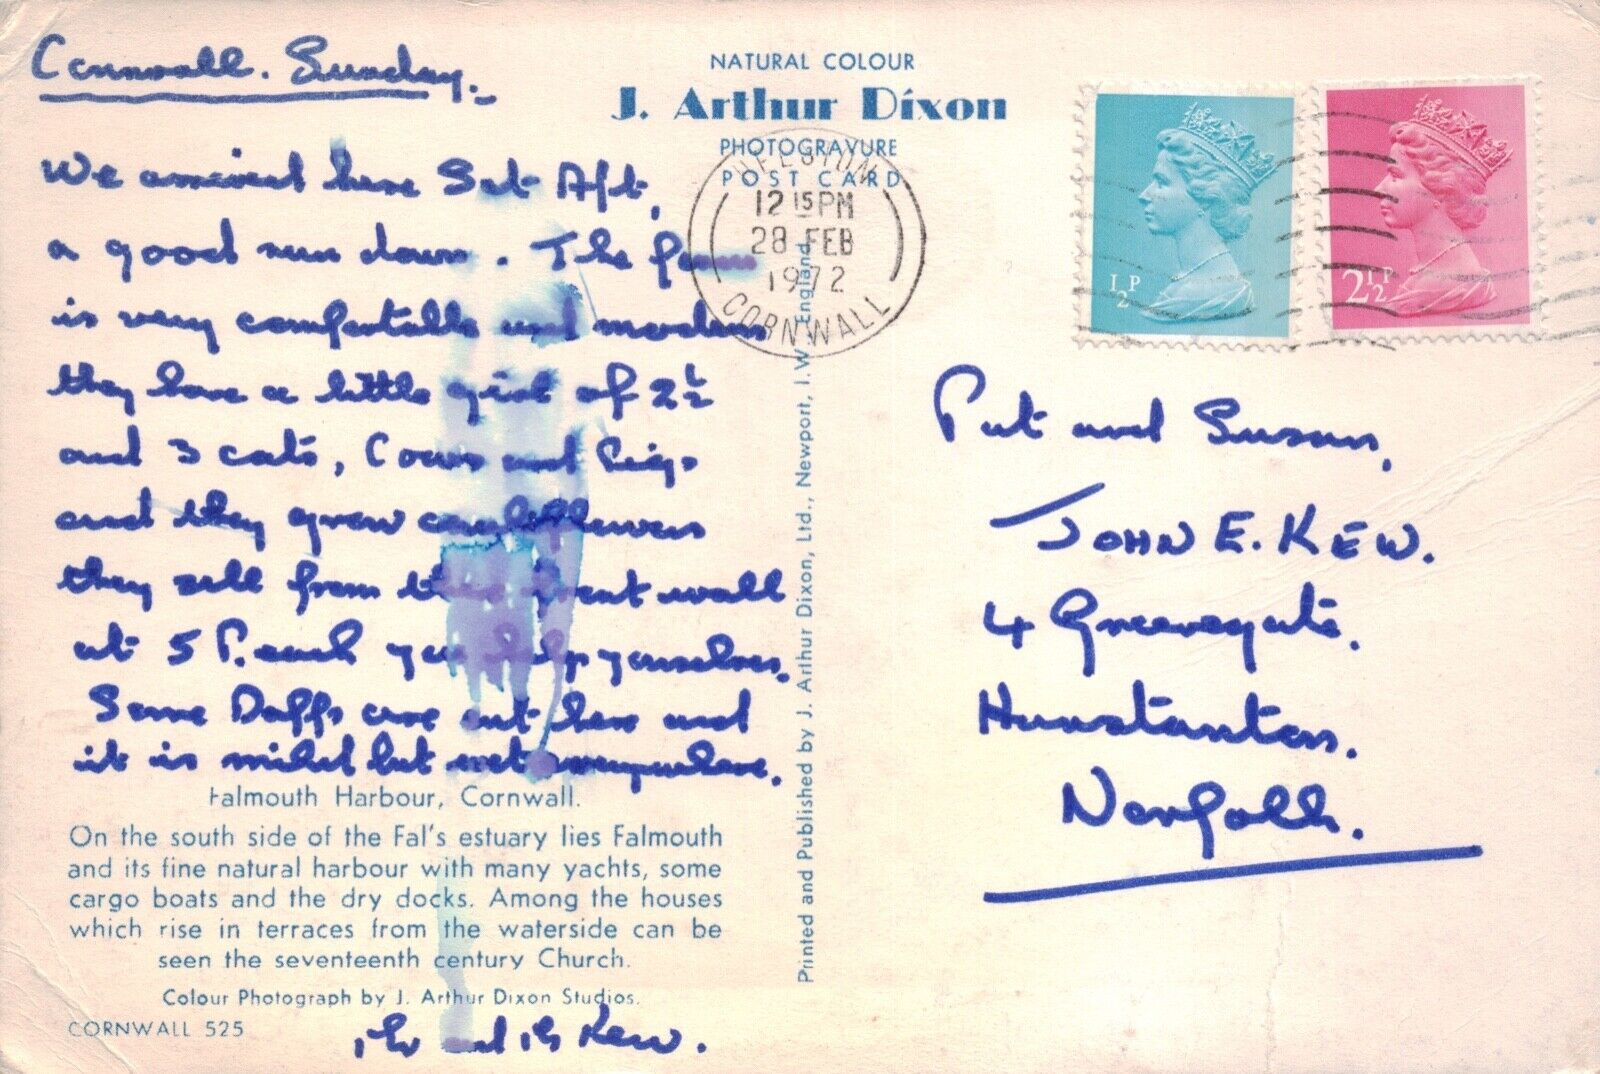 Cornwall. Sunday.
We arrived here Sat Aft,
a good run down. The farm
is very comfortable and modern
they have a little girl of 2½
and 3 cats, Cows and Pigs
and they grow cauliflowers
they sell from the front wall
at 5 P. each you help yourselves.
Some Daffs are out here and
it is mild but wet everywhere.
Falmouth Harbour, Cornwall.
On the south side of the Fal's estuary lies Falmouth
and its fine natural harbour with many yachts, some
cargo boats and the dry docks. Among the houses
which rise in terraces from the waterside can be
seen the seventeenth century Church.
Colour Photograph by J. Arthur Dixon Studios.
CORNWALL 525
and Kew.
NATURAL COLOUR
J. Arthur Dixon
PHOTOGRAVURE
POST CARD
HELSTON
12 15 PM
28 FEB
1972
CORNWALL
Printed and Published by J. Arthur Dixon, Ltd., Newport, I.W., England.
½P
2½P
Pat and Susan,
JOHN E. KEW.
4 Greevegate.
Hunstanton.
Norfolk.